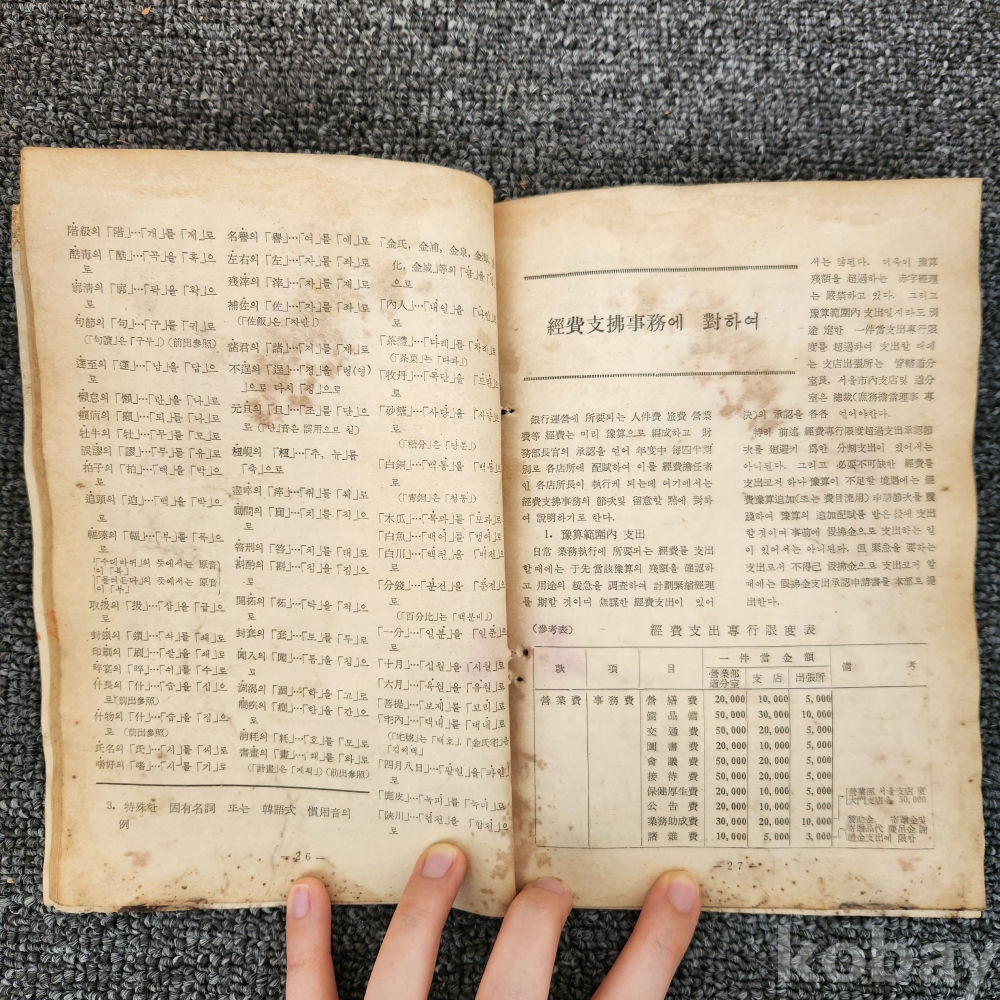 階級의 「階」…「개」를 「계」로
酷毒의 「酷」…「곡」을 「혹」으
로
廓淸의 「廓」…「곽」을 「확」으
로
句節의 「句」…「구」를 「귀」로
(「句讀」은 「구두」) (前出參照)
로
懶怠의 「懶」…「란」을 「나」로
牡牛의 「牡」…「무」를 「모」로
誤謬의 「謬」…「무」를 「유」로
拍子의 「拍」…「백」을 「박」으
로
迫頭의 「迫」…「백」을 「박」으
로
輻輳의 「輻」…「부」를 「폭」으
로
取扱의 「扱」…「삽」을 「급」으
로
封鎖의 「鎖」…「솨」를 「쇄」로
印刷의 「刷」…「솰」을 「쇄」로
什長의 「什」…「습」을 「십」으
로 (前出參照)
什物의 「什」…「습」을 「집」으
로 (前出參照)
氏名의 「氏」…「시」를 「씨」로
嗜好의 「嗜」…「시」를 「기」로
3. 特殊한 固有名詞 또는 韓語式 慣用音의
例
—26—
名譽의 「譽」…「여」를 「예」로
左右의 「左」…「자」를 「좌」로
殘滓의 「滓」…「자」를 「재」로
補佐의 「佐」…「자」를 「좌」로
(「佐飯」은 「자반」)
諸君의 「諸」…「저」를 「제」로
不逞의 「逞」…「정」을 「령(영)
」으로 다시 「정」으로
元旦의 「旦」…「조」를 「단」으
로
로
答刑의 「笞」…「치」를 「태」로
斟酌의 「斟」…「침」을 「짐」으
로
開拓의 「拓」…「탁」을 「척」으
로
封套의 「套」…「토」를 「투」로
闖入의 「闖」…「틈」을 「침」으
로
로
消耗의 「耗」…「호」를 「모」로
書畫의 「畫」…「홰」를 「화」로
(「計畫」은 「계획」) (前出參照)
「金氏, 金浦, 金泉, 金海,
化, 金城」等의 「금」을
으로
「內人」…「내인」을 「나인」으
로
「茶禮」…「다례」를 「차례」로
(「茶菓」는 「다과」)
「牧丹」…「목단」을 「모란」으
로
「砂糖」…「사당」을 「사탕」으
로
(「糖分」은 「당분」)
「白銅」…「백동」을 「백통」으
로
(「靑銅」은 「청동」)
「木瓜」…「목과」를 「모과」로
「白魚」…「백어」를 「뱅어」로
「白川」…「백천」을 「배천」으
로
「分錢」…「분전」을 「푼전」으
로
(「百分比」는 「백분비」)
「一分」…「일분」을 「일푼」으
로
「十月」…「십월」을 「시월」로
「六月」…「육월」을 「유월」로
「菩提」…「보제」를 「보리」로
「宅內」…「택내」를 「댁내」로
「四月八日」…「팔일」을 「파일」
로
「鹿皮」…「녹피」를 「녹비」로
「陜川」…「협천」을 「합천」으
로
經費支拂事務에 對하여
銀行運營에 所要되는 人件費 旅費 營業
費等 經費는 미리 豫算으로 編成하고 財
務部長官의 承認을 얻어 年度中 每四半期
別로 各店所에 配賦하여 이를 經費擔任者
인 各店所長이 執行케 되는데 여기에서는
經費支拂事務의 節次및 留意할 點에 對하
여 說明하기로 한다.
1. 豫算範圍內 支出
日常 業務執行에 所要되는 經費를 支出
할때에는 于先 當該豫算의 殘額을 確認하
고 用途의 緩急을 調査하여 計劃緊縮經理
를 期할 것이며 無謀한 經費支出이 있어
서는 않된다. 더욱이 豫算
殘額을 超過하는 赤字經理
는 嚴禁하고 있다. 그리고
豫算範圍內 支出일지라도 別
途 定한 一件當支出專行限
度를 超過하여 支出할 때에
는 支店出張所는 管轄道分
室長, 서울市內支店및 道分
室은 總裁(庶務擔當理事 專
決)의 承認을 各各 얻어야한다.
特히 前述 經費專行限度超過支出承認節
次를 廻避키 爲한 分割支出이 있어서는
아니된다. 그리고 必要不可缺한 經費를
支出코저 하나 豫算이 不足할 境遇에는 經
費豫算追加(또는 費目流用)申請節次를 履
踐하여 豫算의 追加配賦를 받은後에 支出
할것이며 事前에 假拂金으로 支出하는 일
이 있어서는 아니된다. 但 緊急을 要하는
支出로서 不得已 假拂金으로 支出코저 할
때에는 假拂金支出承認申請書를 本部로 提
出한다.
(參考表) 經費支出專行限度表
款 項 目 一件當金額 備考
營業部 道分室 支店 出張所
營業費 事務費 營繕費 20,000 10,000 5,000
備品費 50,000 30,000 10,000
交通費 50,000 20,000 5,000
圖書費 20,000 10,000 5,000
會議費 50,000 20,000 5,000
接待費 50,000 20,000 5,000
保健厚生費 20,000 10,000 5,000 營業部 서울支店 東大門支店은 50,000
公告費 20,000 10,000 5,000
業務助成費 30,000 20,000 10,000
諸雜費 10,000 5,000 3,000
—27—
kobay